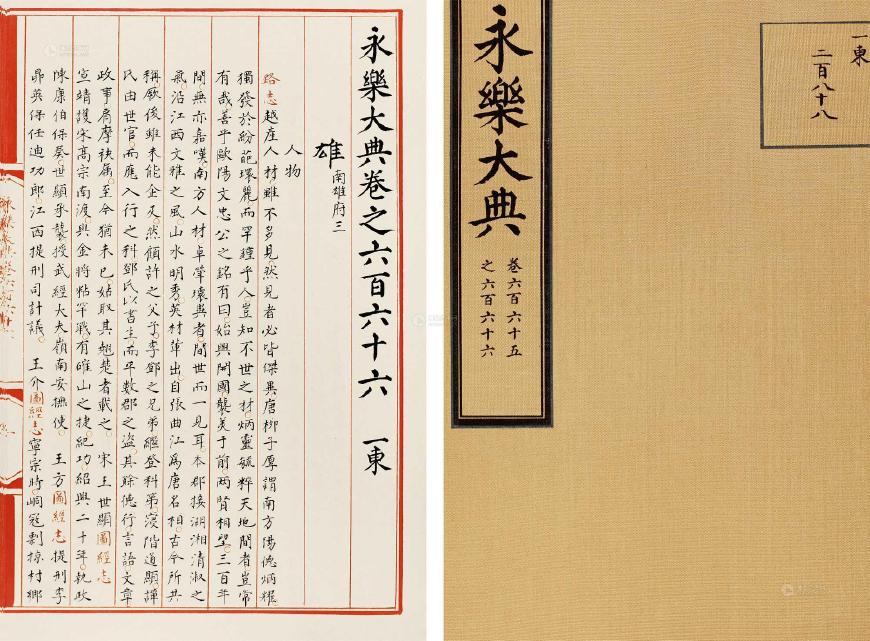 永樂大典
卷六百六十五
之六百六十六
一東
二百八十八
永樂大典卷之六百六十六　一東
雄
南雄府三
人物
路志越産人材雖不多見然見者必皆傑異唐柳子厚謂南方陽德炳耀
獨發於紛葩瓌麗而罕鍾乎人豈知不世之材炳靈毓粹天地間者豈常
有哉善乎歐陽文忠公之銘有曰始興開國襲美于前兩賢相望三百年
間無亦嘉嘆南方人材卓犖瓌異者間世而一見耳本郡接湖湘清淑之
氣沿江西文雅之風山水明秀英材蓽出自張曲江爲唐名相古今所共
稱厥後雖未能企及然頜許之父子李鄧之兄弟繼登科第寖階道顯譁
氏由世官而應入行之科鄧氏以書生而平數郡之盜其餘德行言語文章
政事肩摩袂屬至今猶未已姑取其翹楚者載之　宋王世顯圖經志
宣靖護宋高宗南渡與金將粘罕戰有確山之捷紀功紹興二十年執政
陳康伯保奏世顯承襲授武經大夫嶺南安撫使　王方圖經志提刑李
昴英保任迪功郎江西提刑司計議　王介圖經志寧宗時峒寇剽掠村鄉